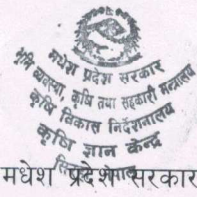 मधेश प्रदेश सरकार
भूमि व्यवस्था, कृषि तथा सहकारी मन्त्रालय
कृषि विकास निर्देशनालय
कृषि ज्ञान केन्द्र
मधेश प्रदेश सरकार